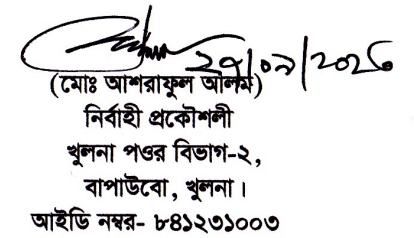 ২৭/০৯/২০২৬
(মোঃ আশরাফুল আলম)
নির্বাহী প্রকৌশলী
খুলনা পওর বিভাগ-২,
বাপাউবো, খুলনা।
আইডি নম্বর- ৮৪১২৩১০০৩